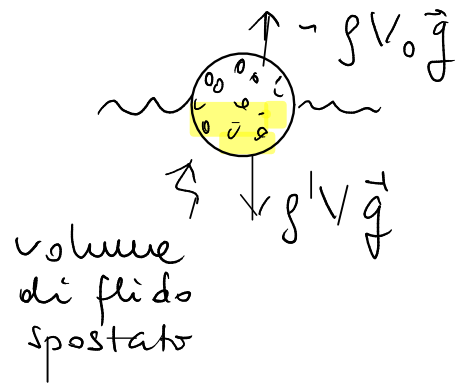 - ρV₀g⃗
ρ'Vg⃗
volume
di fluido
spostato